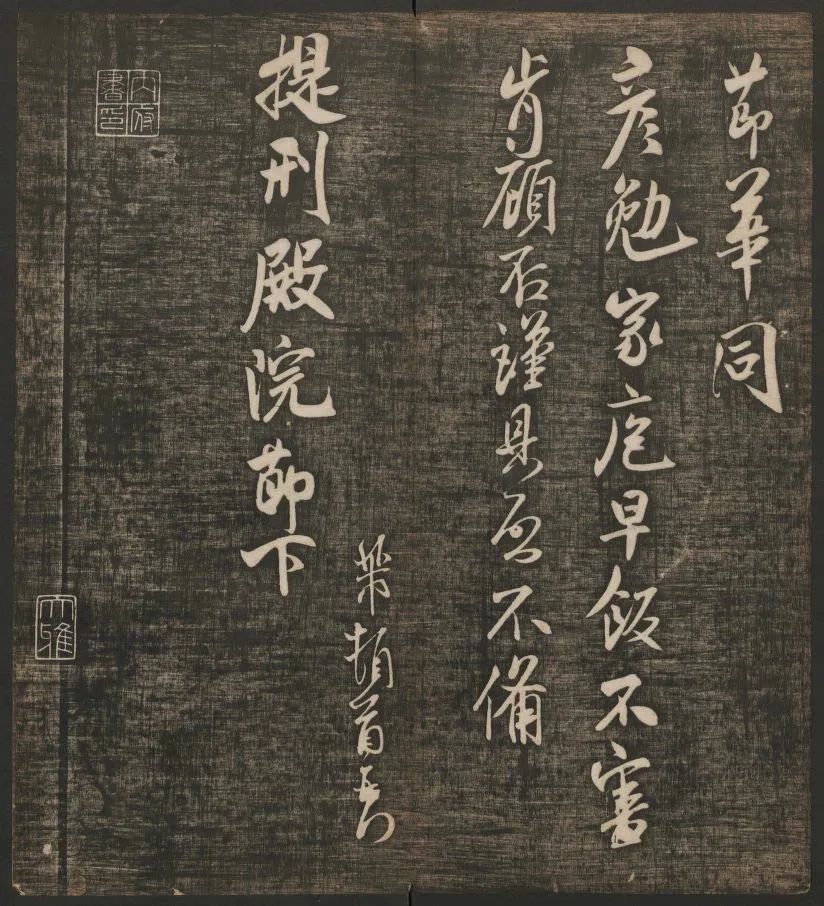 節華同
彥勉家庖早飯不審
肯顧否謹具啓不備
頓首
提刑殿院節下
內府書印
大雅